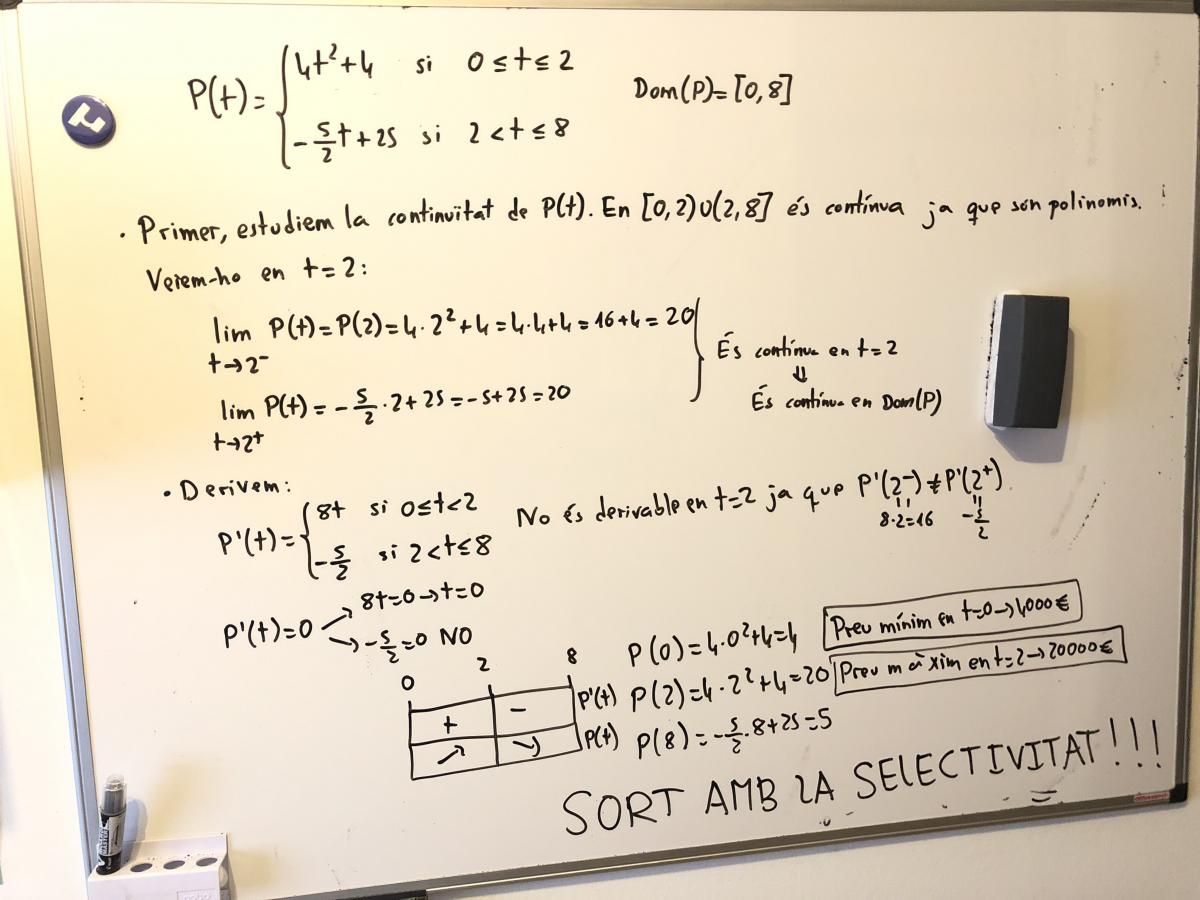 P(t)= { 4t²+4 si 0≤t≤2
-5/2t+25 si 2<t≤8
Dom(P)=[0,8]
· Primer, estudiem la continuïtat de P(t). En [0,2)∪(2,8] és contínua ja que són polinomis.
Veiem-ho en t=2:
lim t→2⁻ P(t)=P(2)=4·2²+4=4·4+4=16+4=20
lim t→2⁺ P(t)=-5/2·2+25=-5+25=20
És contínua en t=2
⇓
És contínua en Dom(P)
· Derivem:
P'(t)= { 8t si 0≤t<2
-5/2 si 2<t≤8
No és derivable en t=2 ja que P'(2⁻)≠P'(2⁺).
8·2=16 -5/2
P'(t)=0 → 8t=0→t=0
→ -5/2=0 NO
0 2 8
+ - P'(t)
↗ ↘ P(t)
P(0)=4·0²+4=4
P(2)=4·2²+4=20
P(8)=-5/2·8+25=5
Preu mínim en t=0→4000€
Preu màxim en t=2→20000€
SORT AMB LA SELECTIVITAT!!!